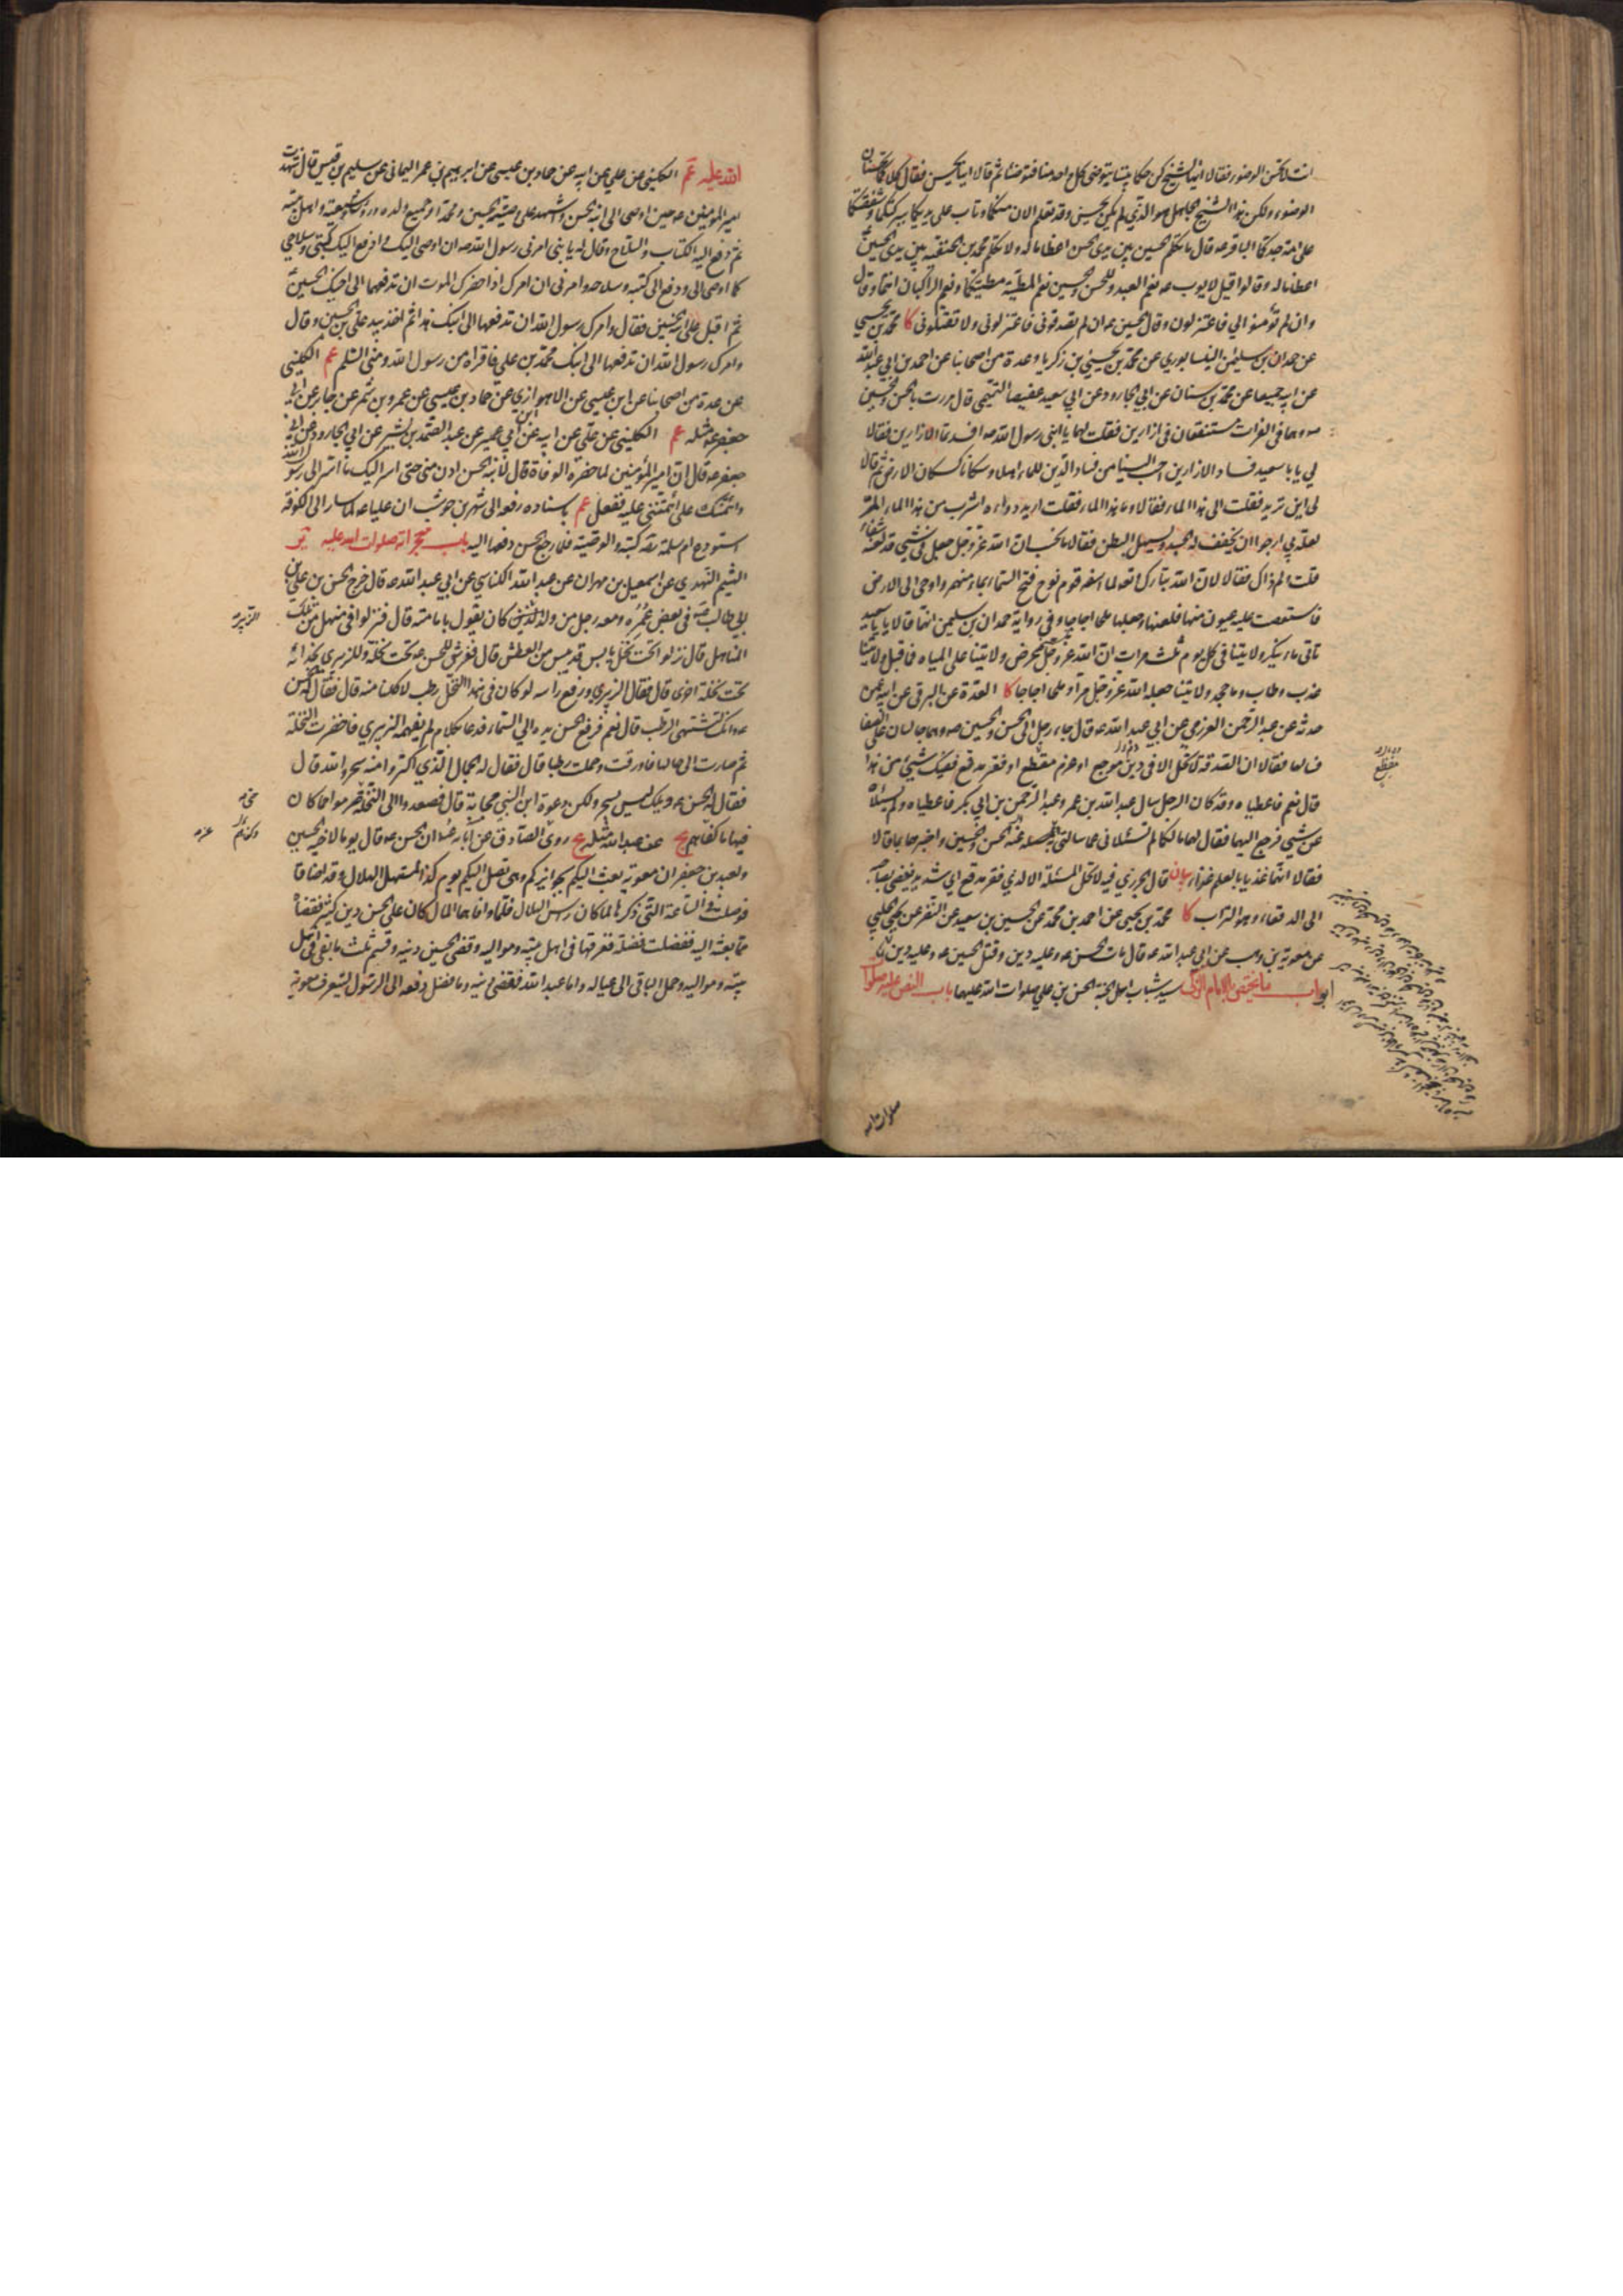 انت لا تحسن الوضوء فقالا ايها الشيخ كن حكما بيننا يتوضى كل واحد منا فتوضئا ثم قالا اينا يحسن فقال كلاكما تحسنان
الوضوء ولكن هذا الشيخ الجاهل هو الذي لم يكن يحسن وقد تعلم الان منكما وتاب على يديكما ببركتكما وشفقتكما
على امة جدكما الباقر ع قال ما تكلم الحسين بين يدى الحسن اعظاما له ولا تكلم محمد بن الحنفية بين يدى الحسين
اعظاما له وقالوا قيل لايوب ع نعم العبد وللحسن والحسين نعم المطية مطيتكما ونعم الراكبان انتما وقال
وان لم تؤمنوا لي فاعتزلون وقال الحسين ع ان لم تصدقوني فاعتزلوني ولا تقتلوني كا محمد بن يحيى
عن حمدان بن سليمن النيسابوري عن محمد بن يحيى بن زكريا وعدة من اصحابنا عن احمد بن ابي عبد الله
عن ابيه جميعا عن محمد بن سنان عن ابي الجارود عن ابي سعيد عقيصا التيمي قال مررت بالحسن والحسين
ص وهما في الفرات مستنقعان في ازارين فقلت لهما يا ابنى رسول الله ص افسدتما الازارين فقالا
لي يا با سعيد فساد الازارين احب الينا من فساد الدين ان للماء اهلا وسكانا كسكان الارض ثم قالا
لى اين تريد فقلت الى هذا الماء فقالا وما هذا الماء فقلت اريد دواءه اشرب من هذا الماء المر
لعلة بي ارجو ان يخفف له الجسد ويسهل البطن فقالا ما نحسب ان الله عز وجل جعل في شيء قد لعنه شفاء
قلت لم ذاك فقالا لان الله تبارك وتعالى لما اسفه قوم نوح فتح السماء بماء منهمر واوحى الى الارض
فاستعصت عليه عيون منها فلعنها وجعلها ملحا اجاجا وفي رواية حمدان بن سليمن انهما قالا يا با سعيد
تاتى ماء ينكر ولايتنا في كل يوم ثلث مرات ان الله عز وجل عرض ولايتنا على المياه فما قبل ولايتنا
عذب وطاب وما جحد ولايتنا جعله الله عز وجل مرا وملحا اجاجا كا العدة عن البرقى عن ابيه عمن
حدثه عن عبد الرحمن العزرمي عن ابي عبد الله ع قال جاء رجل الى الحسن والحسين ع وهما جالسان على الصفا
فسالهما فقالا ان الصدقة لا تحل الا في دين موجع او غرم مفظع او فقر مدقع ففيك شيء من هذا
قال نعم فاعطياه وقد كان الرجل سال عبد الله بن عمر وعبد الرحمن بن ابي بكر فاعطياه ولم يسئلاه
عن شيء فرجع اليهما فقال لهما ما لكما لم تسئلاني عما سالني عنه الحسن والحسين واخبرهما بما قالا
فقالا انهما غذيا بالعلم غذاء بيان قال الجزري فيه لا تحل المسئلة الا لذي فقر مدقع اي شديد يفضي بصاحبه
الى الدقعاء وهو التراب كا محمد بن يحيى عن احمد بن محمد عن الحسين بن سعيد عن النضر عن يحيى الحلبي
عن معوية بن وهب عن ابي عبد الله ع قال مات الحسن ع وعليه دين وقتل الحسين ع وعليه دين
ابواب ما يختص بالامام الزكى سيد شباب اهل الجنة الحسن بن علي صلوات الله عليهما باب النص عليه صلوات
مفظع
صلوات الله
الله عليه عم الكليني عن علي عن ابيه عن حماد بن عيسى عن ابرهيم بن عمر اليماني عن سليم بن قيس قال شهدت
امير المؤمنين ع حين اوصى الى ابنه الحسن واشهد على وصيته الحسين ومحمدا وجميع ولده ورؤساء شيعته واهل بيته
ثم دفع اليه الكتاب والسلاح وقال له يا بني امرني رسول الله ص ان اوصى اليك وادفع اليك كتبى وسلاحي
كما اوصى الي ودفع الى كتبه وسلاحه وامرنى ان امرك اذا حضرك الموت ان تدفعها الى اخيك الحسين
ثم اقبل على ابنه الحسين فقال وامرك رسول الله ان تدفعها الى ابنك هذا ثم اخذ بيد على بن الحسين وقال
وامرك رسول الله ان تدفعها الى ابنك محمد بن علي فاقراه من رسول الله ومني السلم عم الكليني
عن عدة من اصحابنا عن ابن عيسى عن الاهوازي عن حماد بن عيسى عن عمرو بن شمر عن جابر عن ابى
جعفر ع مثله عم الكليني عن علي عن ابيه عن ابن ابي عمير عن عبد الصمد بن بشير عن ابي الجارود عن ابى
جعفر ع قال ان امير المؤمنين لما حضره الوفاة قال لابنه الحسن ادن مني حتى اسر اليك ما اسر الى رسول الله
وائتمنك على ما ائتمنني عليه ففعل عم باسناده رفعه الى شهر بن حوشب ان عليا ع لما سار الى الكوفة
استودع ام سلمة رض كتبه والوصية فلما رجع الحسن دفعها اليه باب معجزاته صلوات الله عليه ير
الهيثم النهدي عن اسمعيل بن مهران عن عبد الله الكناسي عن ابي عبد الله ع قال خرج الحسن بن علي بن
ابي طالب ع في بعض عمره ومعه رجل من ولد الزبير كان يقول بامامته قال فنزلوا في منهل من تلك
المناهل قال نزلوا تحت نخل يابس قد يبس من العطش قال ففرش للحسن ع تحت نخلة وللزبيري بحذائه
تحت نخلة اخرى قال فقال الزبيري ورفع راسه لو كان في هذا النخل رطب لاكلنا منه قال فقال له الحسن
ع وانك لتشتهي الرطب قال نعم فرفع الحسن يده الي السماء فدعا بكلام لم يفهمه الزبيري فاخضرت النخلة
ثم صارت الى حالها فاورقت وحملت رطبا قال فقال له الجمال الذي اكتروا منه سحر والله قال
فقال له الحسن ع ويلك ليس بسحر ولكن دعوة ابن النبي مجابة قال فصعدوا الى النخلة فصرموا مما كان
فيها ما كفاهم يج عن عبد الله مثله يج روي الصادق عن ابائه ع ان الحسن ع قال يوما لاخيه الحسين
ولعبد الله بن جعفر ان معوية بعث اليكم بجوايزكم وهى تصل اليكم يوم كذا لمستهل الهلال وقد اضاقا
فوصلت في الساعة التي ذكرها لما كان راس الهلال فلما وافاهما المال كان على الحسن دين كثير فقضاه
مما بعثه اليه ففضلت فضلة ففرقها في اهل بيته ومواليه وقضى الحسين دينه وقسم ثلث ما بقى في اهل
بيته ومواليه وحمل الباقى الى عياله واما عبد الله فقضى دينه وما فضل دفعه الى الرسول ليتعرف معوية
الزبير